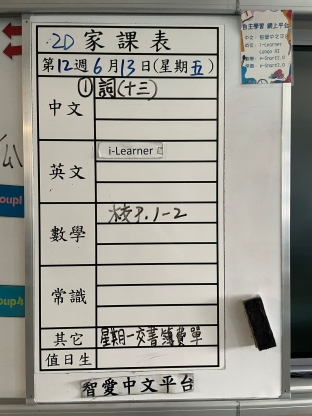 2D 家課表
第12週6月13日(星期五)
中文 ①詞(十三)
英文 i-Learner
數學 P.1-2
常識
其它 星期一交書簿費單
值日生
智愛中文平台
自主學習 網上平台
i-Learner
oup1
oup4